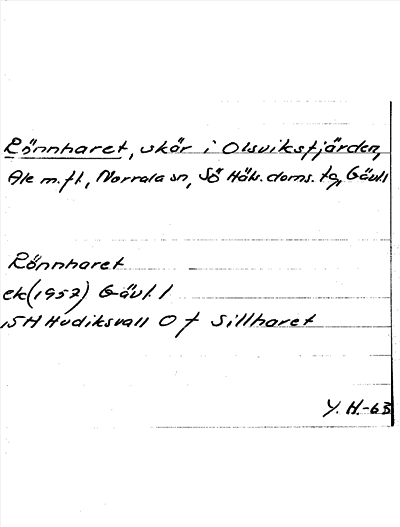 Rönnharet, skär i Olsviksfjärden,
Ale m. fl, Norrala sn, Sö Häls. doms. tg, Gävl. l
Rönnharet
ek (1957) Gävl. l
15H Hudiksvall 0 f Sillharet
Y. H.-63